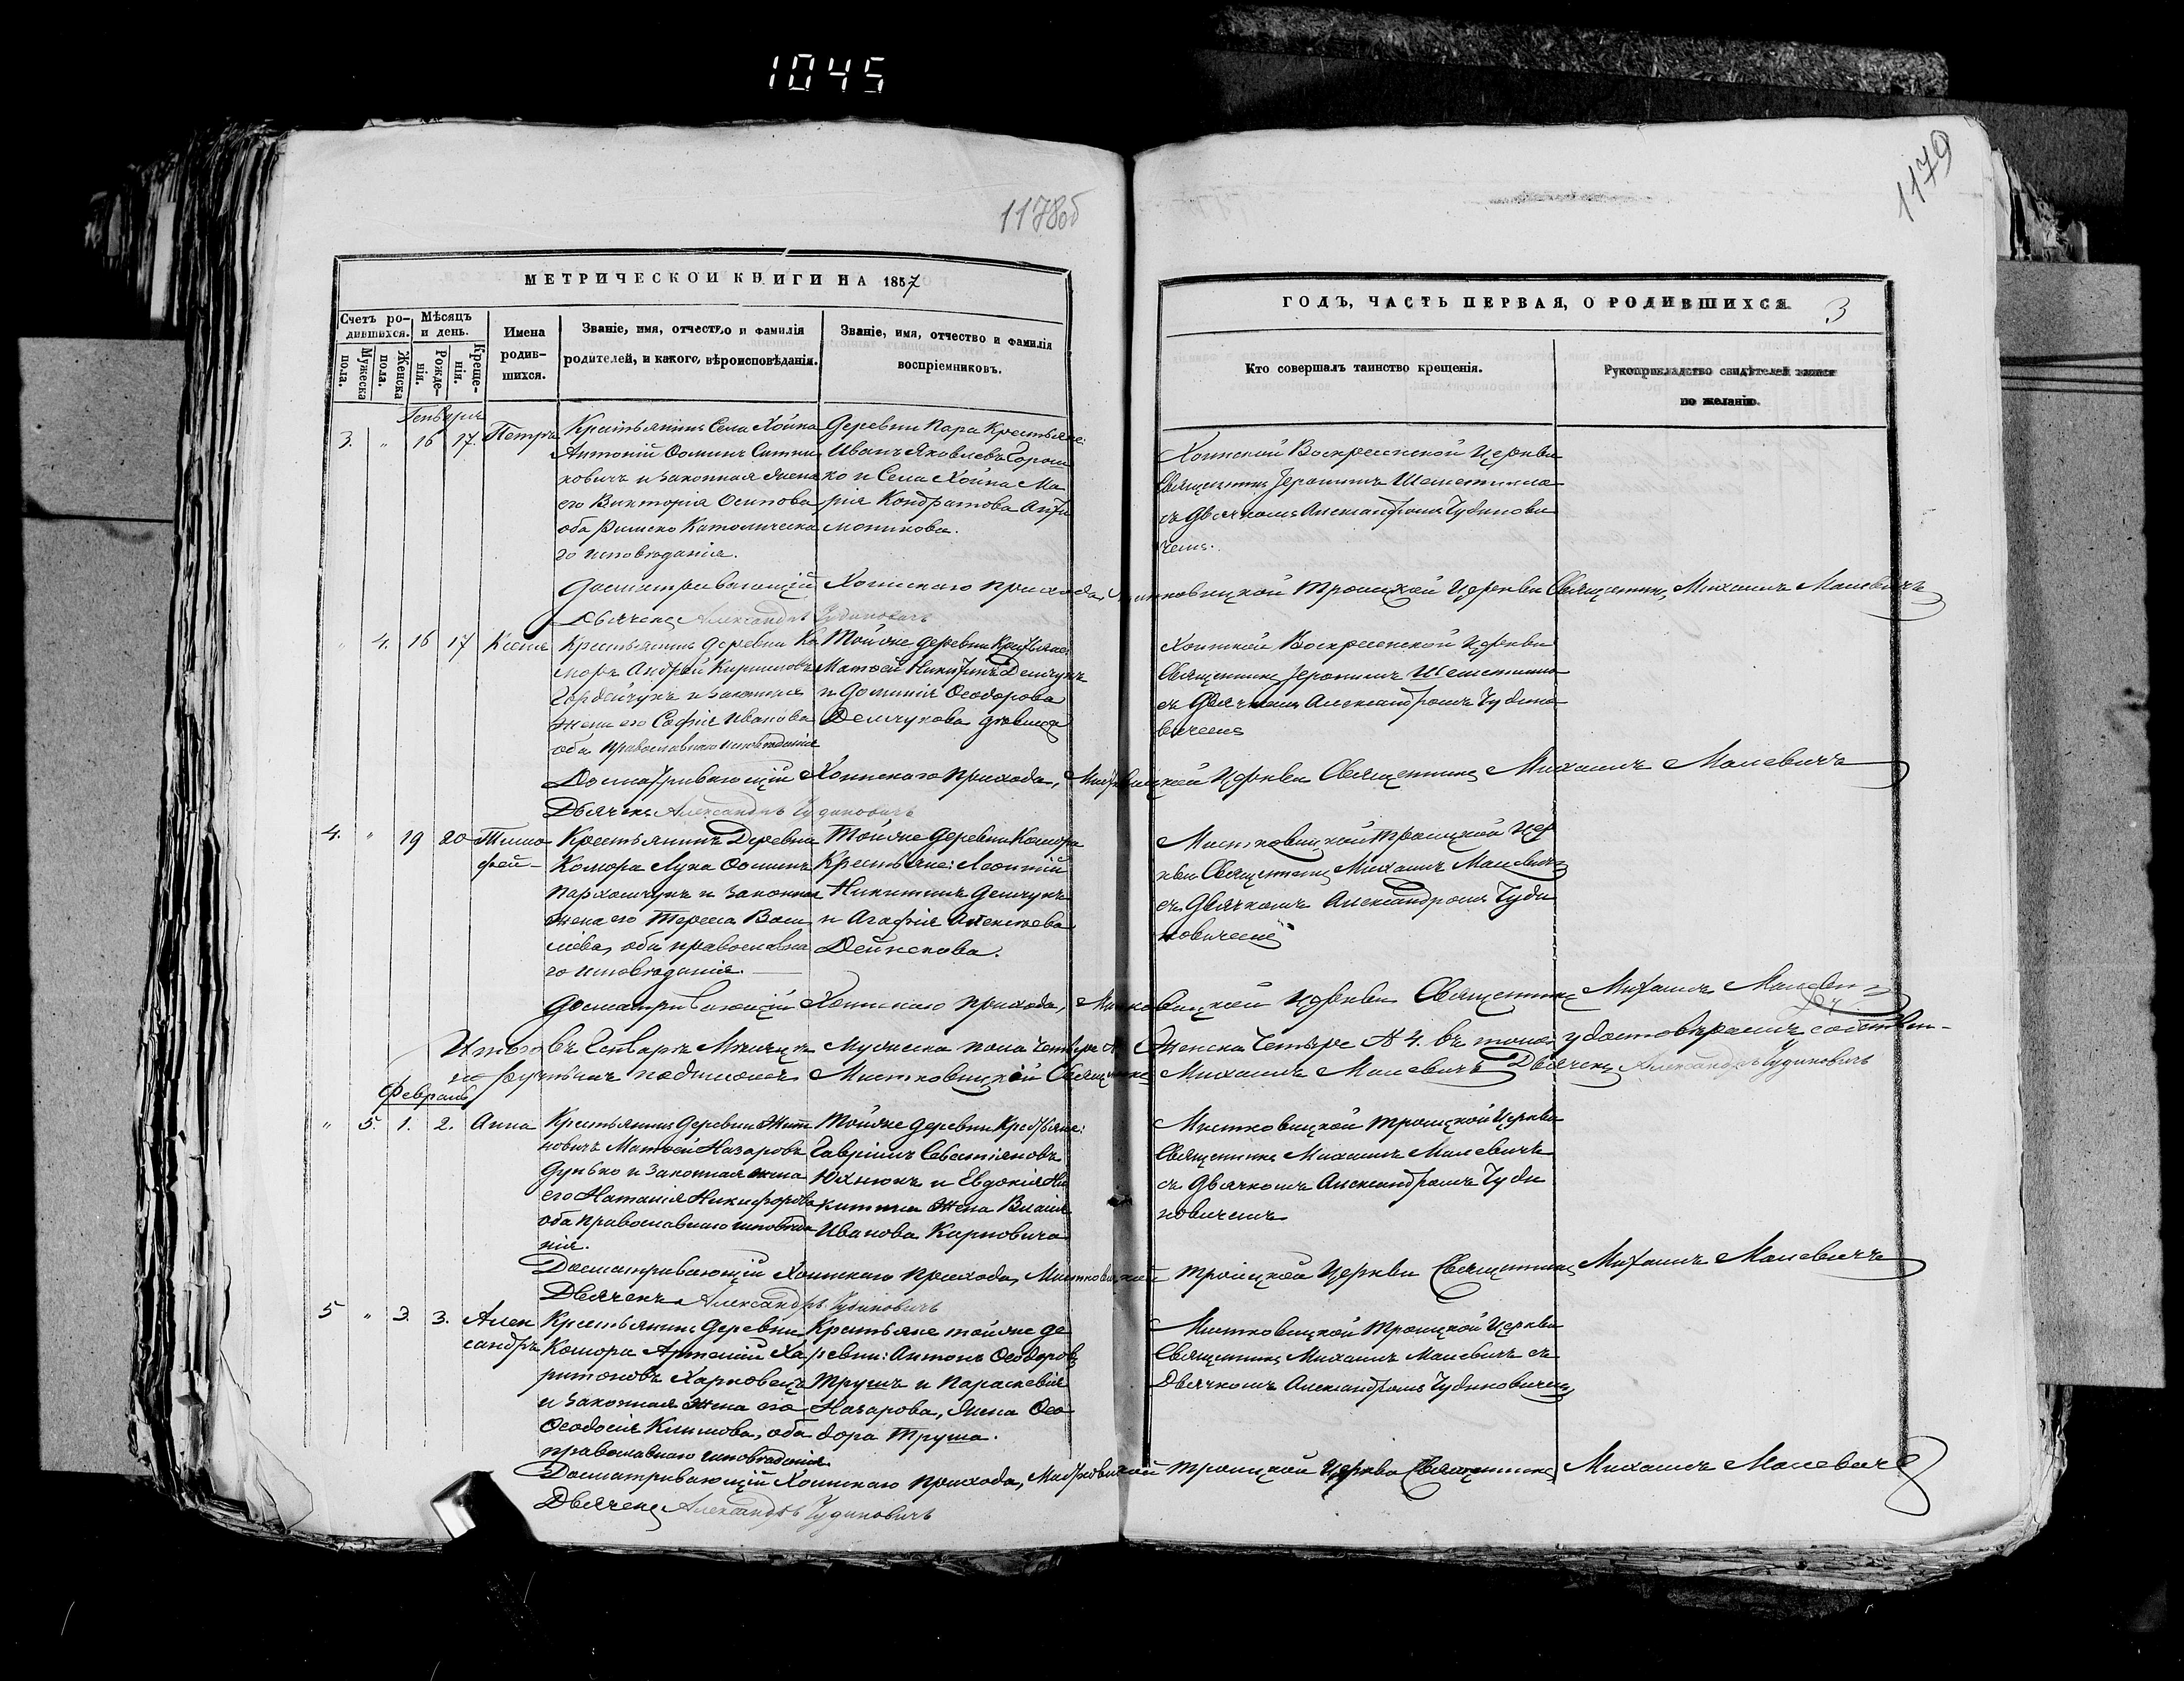 1045
1178об
1179
МЕТРИЧЕСКОИ КНИГИ НА 1857
Счетъ ро-
дившихся.
Мѣсяцъ
и день.
Мужеска
пола.
Женска
пола.
Рожде-
нія.
Креще-
нія.
Имена
родив-
шихся.
Званіе, имя, отчество и фамилія
родителей, и какого, вѣроисповѣданія.
Званіе, имя, отчество и фамилія
воспріемниковъ.
ГОДЪ, ЧАСТЬ ПЕРВАЯ, О РОДИВШИХСЯ. 3
Кто совершалъ таинство крещенія.
Рукоприкладство свидѣтелей записи
по желанію.
Генварь
3. " 16 17. Петръ
Крестьянинъ Села Хойна
Антоній Ѳоминъ Ситни
ковичъ и законная жена
его Викторія Осипова
оба Римско Католическа
го исповѣданія.
Деревни Пара Крестьяне:
Иванъ Яковлевъ Горош
ко и Села Хойна Ма
рія Кондратова
Хоинской Воскресенской Церкви
Священникъ Іеронимъ
съ Дьячкомъ Александромъ Чудинови
чемъ.
Досматривающій Хоинскаго прихода, Мистковицкой Троицкой Церкви Священникъ Михаилъ Малевичъ
Дьячекъ Александръ Чудиновичъ
" 4. 16 17 Ксенія
Крестьянинъ Деревни Ко
мора Андрей Кириловъ
Гордейчукъ и законная
жена его Софія Иванова
оба православнаго исповѣданія
Тойже деревни Крестьяне:
Матѳей Никитинъ Демчукъ
и Домникія Ѳеодорова
Демчукова дѣвица
Хоинской Воскресенской Церкви
Священникъ Іеронимъ
съ Дьячкомъ Александромъ Чудино
вичемъ
Досматривающій Хоинскаго прихода, Мистковицкой Церкви Священникъ Михаилъ Малевичъ
Дьячекъ Александръ Чудиновичъ
4. " 19 20 Тимо
фей
Крестьянинъ Деревни
Комора Лука Ѳоминъ
Пархомчукъ и законная
жена его Тереса Васи
лiева, оба православна
го исповѣданія.
Тойже деревни Комора
Крестьяне: Леонтій
Никитинъ Демчукъ
и Агафія Алексѣева
Дейнекова.
Мистковицкой Троицкой Цер
кви Священникъ Михаилъ Малевичъ
съ Дьячкомъ Александромъ Чуди
новичемъ
Досматривающій Хоинскаго прихода, Мистковицкой Церкви Священникъ Михаилъ Малевичъ
Итого въ Генварѣ Мѣсяцѣ Мужеска пола четыре № Женска четыре № 4. въ томъ удостовѣряемъ собствен-
но ручнымъ подписомъ Мистковицкой Священникъ Михаилъ Малевичъ Дьячекъ Александръ Чудиновичъ
Февраль
" 5 1. 2. Анна
Крестьянинъ Деревни Жит
новичъ Матѳей Назаровъ
Дунько и законная жена
его Наталія Никифорова
оба православнаго исповѣда
нія.
Тойже Деревни Крестьяне:
Гавріилъ Севастіяновъ
Юхнюкъ и Евдокія Ни
китина жена Василія
Иванова Карповича
Мистковицкой Троицкой Церкви
Священникъ Михаилъ Малевичъ
съ Дьячкомъ Александромъ Чуди
новичемъ
Досматривающій Хоинскаго прихода, Мистковицкой Троицкой Церкви Священникъ Михаилъ Малевичъ
Дьячекъ Александръ Чудиновичъ
5 " 3. Алек
сандръ
Крестьянинъ Деревни
Комора Артемій Ха
ритоновъ Харковецъ
и законная жена его
Ѳеодосія Климова, оба
православнаго исповѣданія
Крестьяне тойже де
ревни: Антонъ Ѳеодоровъ
Трушъ и Параскевія
Назарова, жена Ѳео
дора Труша.
Мистковицкой Троицкой Церкви
Священникъ Михаилъ Малевичъ съ
Дьячкомъ Александромъ Чудиновичемъ
Досматривающій Хоинскаго прихода, Мистковицкой Троицкой Церкви Священникъ Михаилъ Малевичъ
Дьячекъ Александръ Чудиновичъ